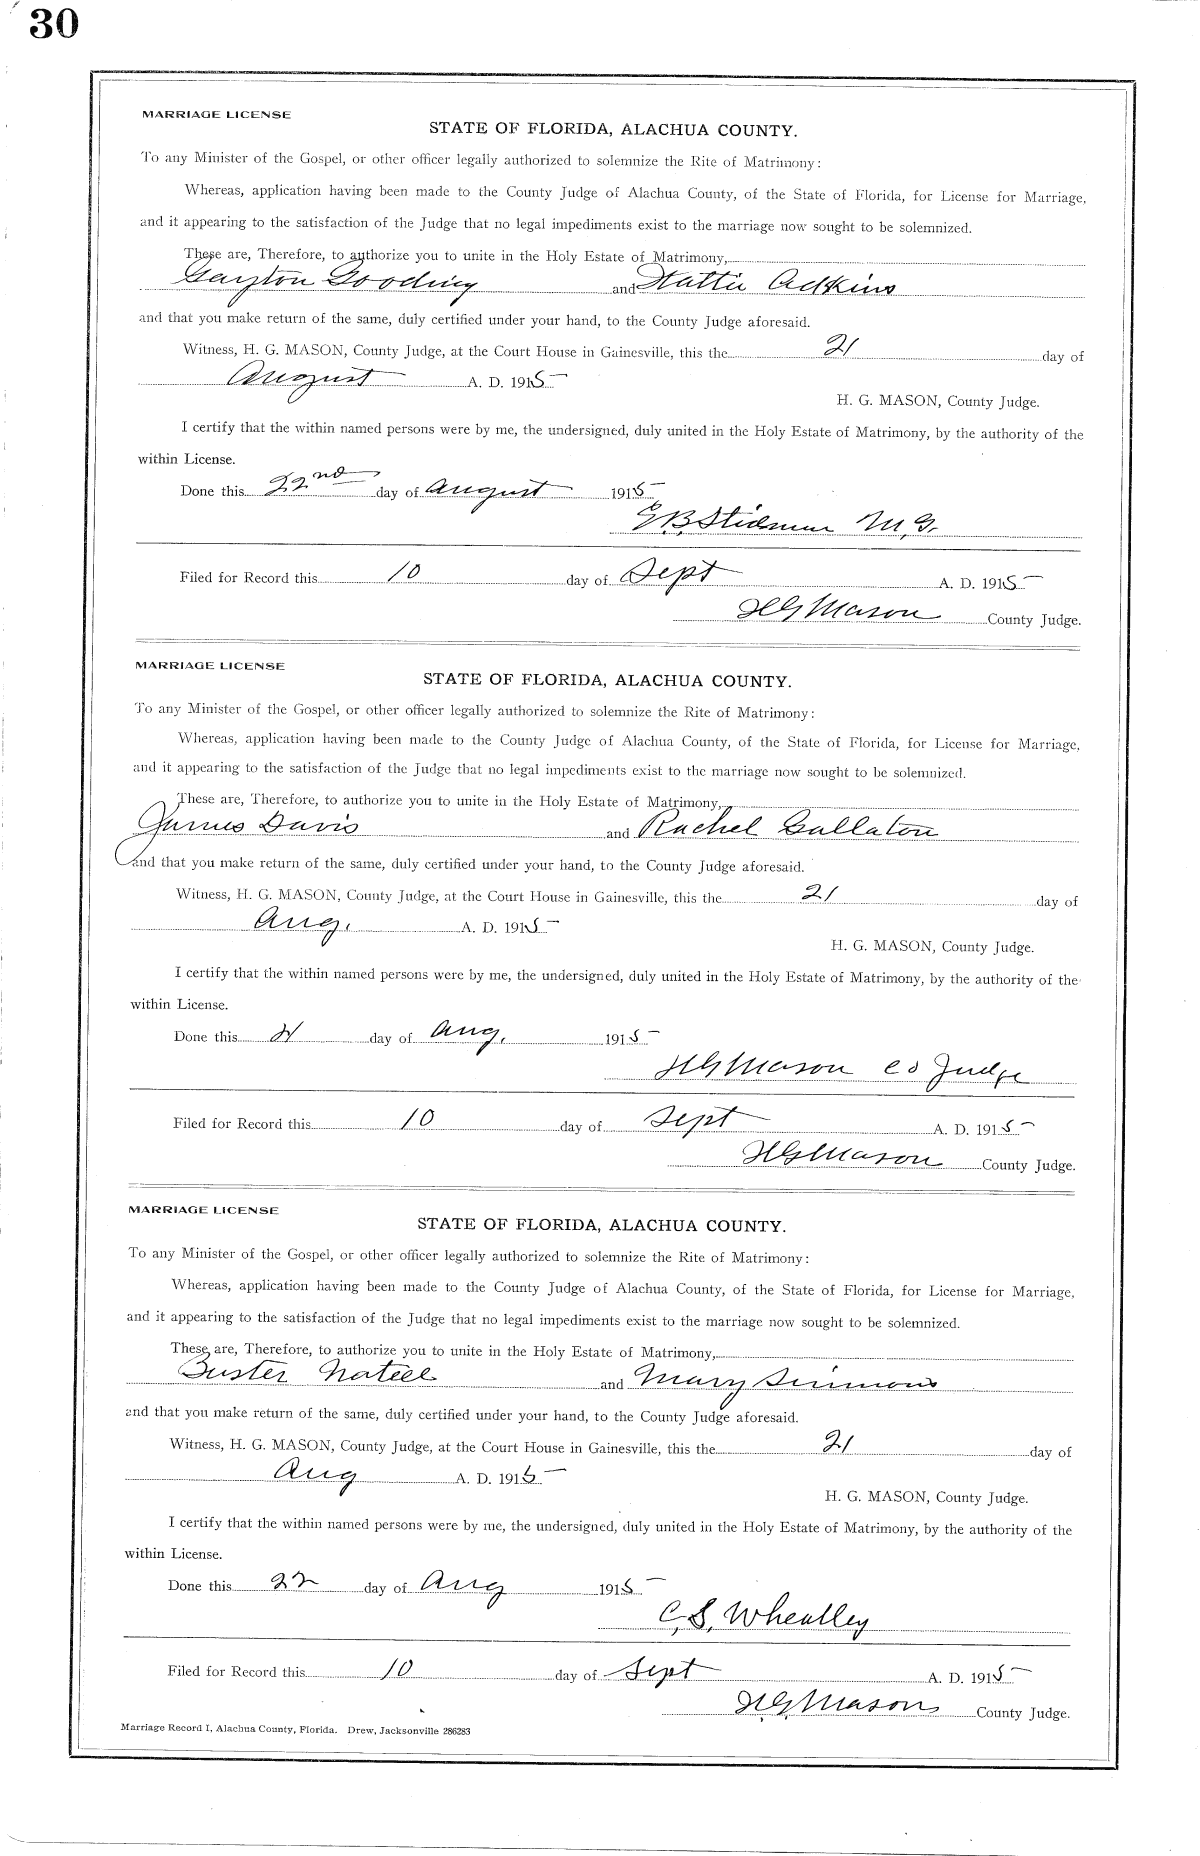 30
MARRIAGE LICENSE
STATE OF FLORIDA, ALACHUA COUNTY.
To any Minister of the Gospel, or other officer legally authorized to solemnize the Rite of Matrimony:
Whereas, application having been made to the County Judge of Alachua County, of the State of Florida, for License for Marriage,
and it appearing to the satisfaction of the Judge that no legal impediments exist to the marriage now sought to be solemnized.
These are, Therefore, to authorize you to unite in the Holy Estate of Matrimony,
Gayton Gooding and Hattie Adkins
and that you make return of the same, duly certified under your hand, to the County Judge aforesaid.
Witness, H. G. MASON, County Judge, at the Court House in Gainesville, this the 21 day of
August A. D. 1915
H. G. MASON, County Judge.
I certify that the within named persons were by me, the undersigned, duly united in the Holy Estate of Matrimony, by the authority of the
within License.
Done this 22nd day of August 1915
E.B. Stidman M.G.
Filed for Record this 10 day of Sept A. D. 1915
H G Mason County Judge.
MARRIAGE LICENSE
STATE OF FLORIDA, ALACHUA COUNTY.
To any Minister of the Gospel, or other officer legally authorized to solemnize the Rite of Matrimony:
Whereas, application having been made to the County Judge of Alachua County, of the State of Florida, for License for Marriage,
and it appearing to the satisfaction of the Judge that no legal impediments exist to the marriage now sought to be solemnized.
These are, Therefore, to authorize you to unite in the Holy Estate of Matrimony,
James Davis and Rachel Gallaton
and that you make return of the same, duly certified under your hand, to the County Judge aforesaid.
Witness, H. G. MASON, County Judge, at the Court House in Gainesville, this the 21 day of
Aug. A. D. 1915
H. G. MASON, County Judge.
I certify that the within named persons were by me, the undersigned, duly united in the Holy Estate of Matrimony, by the authority of the
within License.
Done this 21 day of Aug. 1915
H G Mason Co Judge
Filed for Record this 10 day of Sept A. D. 1915
H G Mason County Judge.
MARRIAGE LICENSE
STATE OF FLORIDA, ALACHUA COUNTY.
To any Minister of the Gospel, or other officer legally authorized to solemnize the Rite of Matrimony:
Whereas, application having been made to the County Judge of Alachua County, of the State of Florida, for License for Marriage,
and it appearing to the satisfaction of the Judge that no legal impediments exist to the marriage now sought to be solemnized.
These are, Therefore, to authorize you to unite in the Holy Estate of Matrimony,
Buster Nateel and Mary Simmons
and that you make return of the same, duly certified under your hand, to the County Judge aforesaid.
Witness, H. G. MASON, County Judge, at the Court House in Gainesville, this the 21 day of
Aug A. D. 1915
H. G. MASON, County Judge.
I certify that the within named persons were by me, the undersigned, duly united in the Holy Estate of Matrimony, by the authority of the
within License.
Done this 22 day of Aug 1915
C. S. Wheatley
Filed for Record this 10 day of Sept A. D. 1915
H. G. Mason County Judge.
Marriage Record I, Alachua County, Florida. Drew, Jacksonville 286283